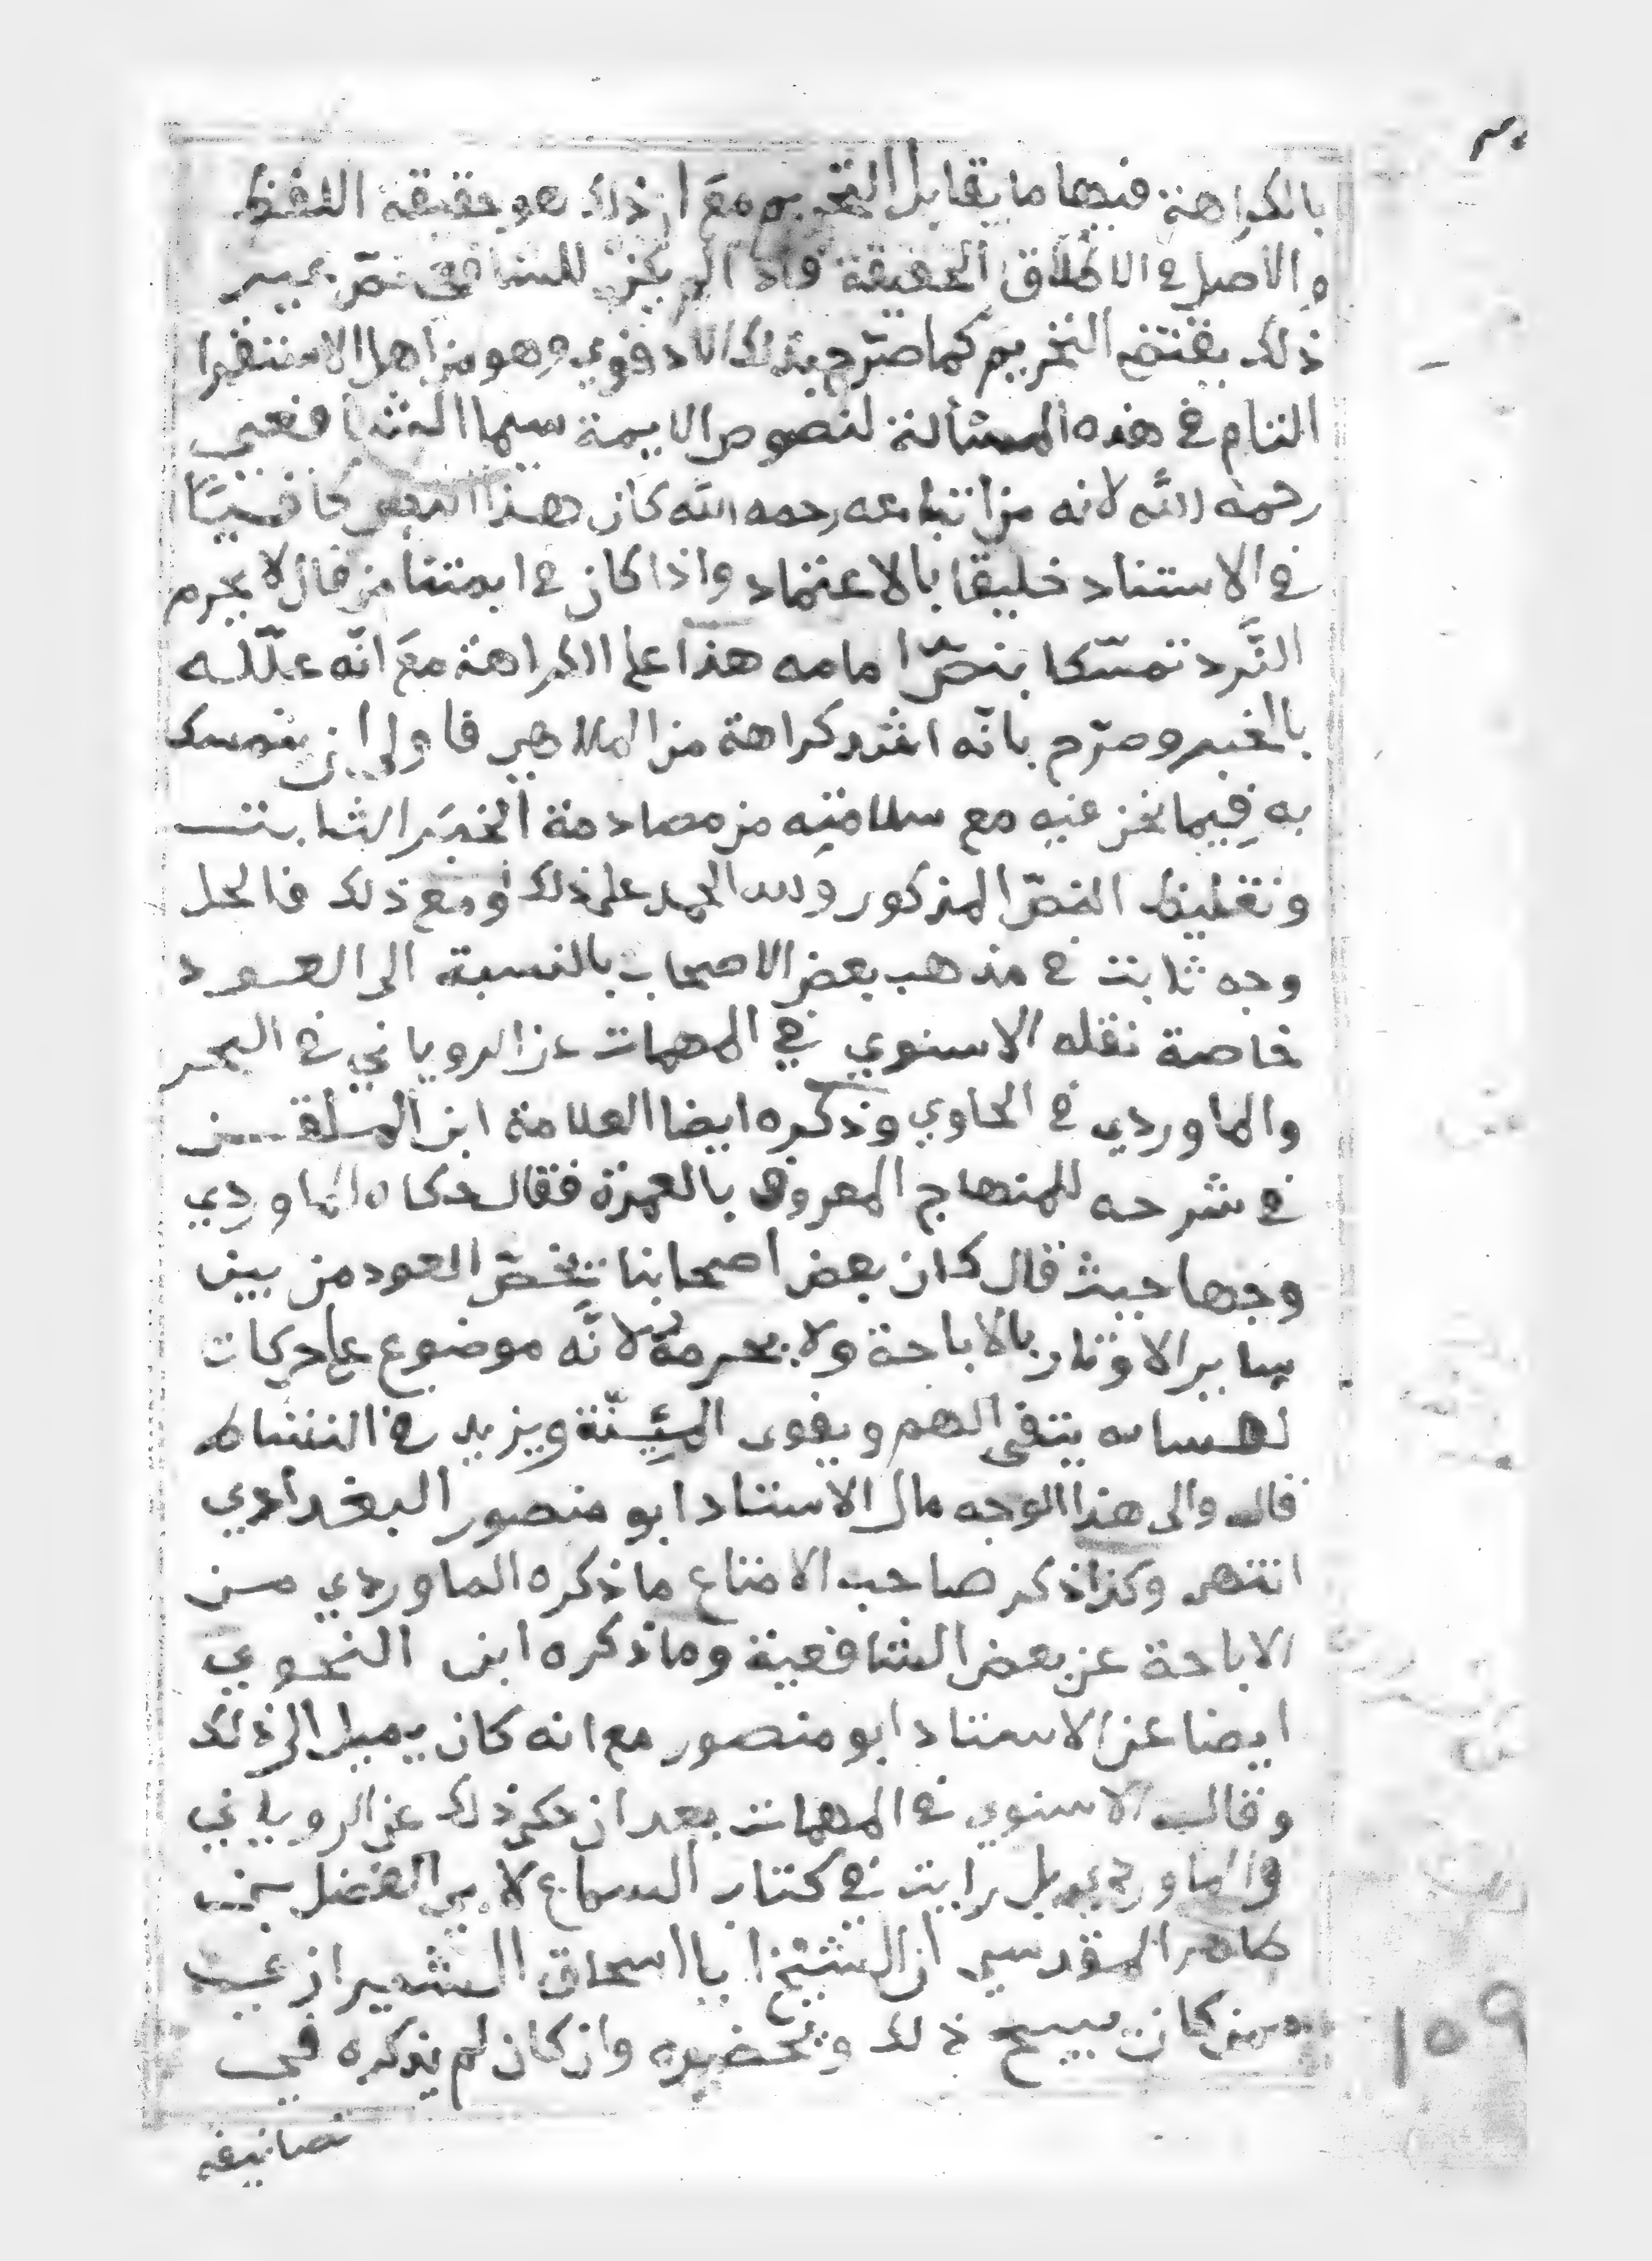 بالكراهة فيها ما يقابل التحريم مع ان ذلك هو حقيقة اللفظ
والاصل في الاطلاق الحقيقة فاذا لم يكن للشافعي نص
ذلك يقتضي التحريم كما صرّح بذلك الادفوي وهو من اهل الاستقرا
التام في هذه المسئالة لنصوص الايمة سيما الشافعي
رحمه الله لانه من اتباعه رحمه الله كان هذا النص كافيًا
في الاستناد خليقا بالاعتماد واذا كان في ايمتنا من قال لا يحرم
النَّرد تمسّكا بنصّ امامه هذا على الكراهة معَ انّه علّله
بالخبر وصرّح بانّه اشد كراهة من الملاهي فاولى ان يتمسك
به فيما نحن فيه مع سلامته من مصادمة الخبَر الثابت
وتغليظ النصّ المذكور ولله الحمد على ذلك ومع ذلك فالحل
وجه ثابت في مذهب بعض الاصحاب بالنسبة الى العود
خاصة نقله الاسنوي في المهمات عن الروياني في البحر
والماوردي في الحاوي وذكره ايضا العلامة ابن الملقن
في شرحه للمنهاج المعروف بالعمدة فقال حكاه الماوردي
وجها حيث قال كان بعض اصحابنا يخصّ العود من بين
ساير الاوتار بالاباحة ولا يحرمه لانَّه موضوع على حركات
نفسانيه ينفي الهم ويقوى الهِمَّة ويزيد في النشاط
قال والى هذا الوجه مال الاستاد ابو منصور البغدادي
انتهى وكذا ذكر صاحب الامتاع ما ذكره الماوردي من
الاباحة عن بعض الشافعية وما ذكره ابن النحوي
ايضا عن الاستاد ابو منصور مع انه كان يميل الى ذلك
وقال الاسنوي في المهمات بعد ان حكى ذلك عن الروياني
والماوردي بل رايت في كتاب السماع لابي الفضل بن
طاهر المقدسي ان الشيخ ابا اسحاق الشيرازي
ممن كان يبيح ذلك ويحضره وان كان لم يذكره في
تصانيفه
١٥٩